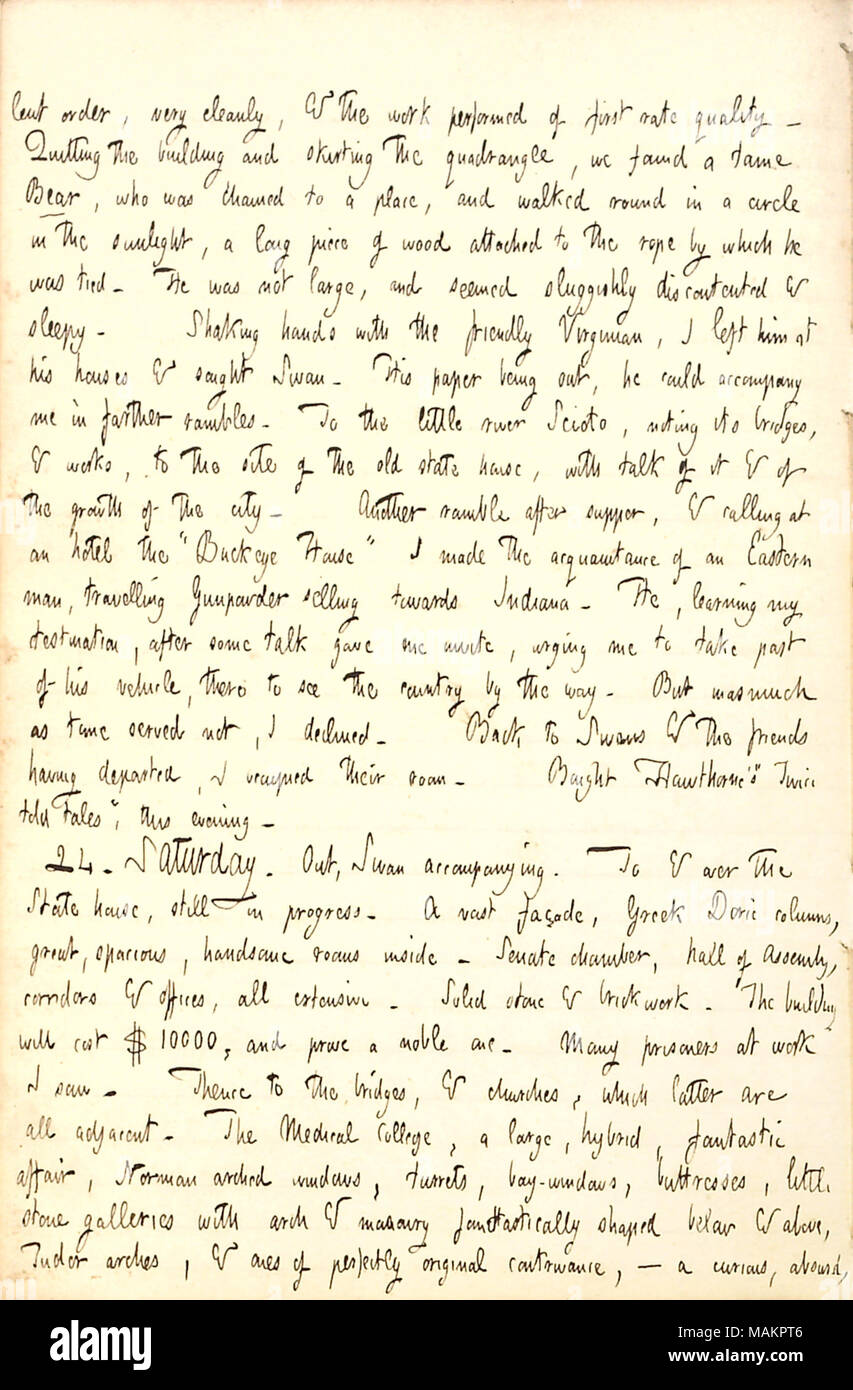 lent order, very cleanly, & the work performed of first rate quality —
Quitting the building and skirting the quadrangle, we found a tame
Bear, who was chained to a place, and walked round in a circle
in the sunlight, a long piece of wood attached to the rope by which he
was tied — He was not large, and seemed sluggishly discontented &
sleepy — Shaking hands with the friendly Virginian, I left him at
his houses & sought Swan — His paper being out, he could accompany
me in farther rambles — To the little river Scioto, noting its bridges,
& works, to the site of the old state house, with talk of it & of
the growth of the city — Another ramble after supper, & calling at
an hotel the "Buckeye House" I made the acquaintance of an Eastern
man, travelling Gunpowder selling towards Indiana — He, learning my
destination, after some talk gave me invite, urging me to take part
of his vehicle, there to see the country by the way — But inasmuch
as time served not, I declined — Back to Swans & the friends
having departed, I occupied their room — Bought Hawthorne's "Twice
told Tales", this evening —
24 — Saturday. Out, Swan accompanying. To & over the
State house, still in progress — A vast façade, Greek Doric columns,
great, spacious, handsome rooms inside — Senate chamber, hall of Assembly,
corridors & offices, all extensive — Solid stone & brickwork — The building
will cost $10000, and prove a noble one — Many prisoners at work
I saw — Thence to the bridges, & churches, which latter are
all adjacent — The Medical College, a large, hybrid, fantastic
affair, Norman arched windows, turrets, bay-windows, buttresses, little
stone galleries with arch & masonry fantastically shaped below & above,
Tudor arches, & ones of perfectly original contrivance, — a curious, absurd,
alamy
Image ID: MAKPT6
www.alamy.com